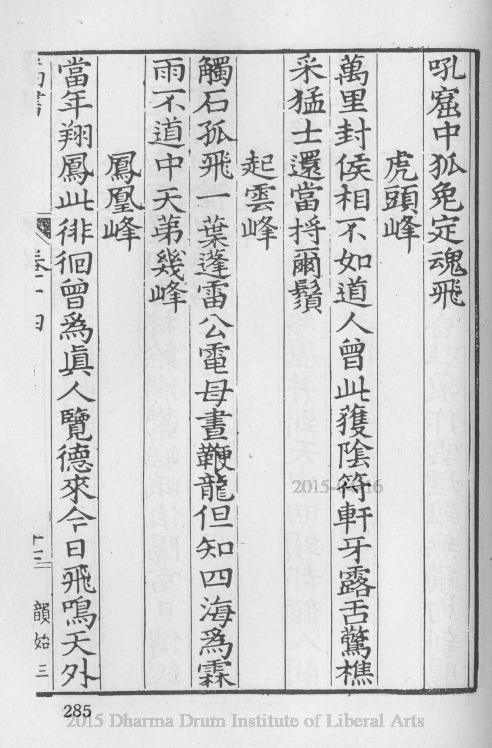 吼窟中狐兔定魂飛
虎頭峰
萬里封侯相不如道人曾此獲陰符軒牙露舌驚樵
采猛士還當捋爾鬚
起雲峰
觸石孤飛一葉蓬雷公電母晝鞭龍但知四海為霖
雨不道中天第幾峰
鳳凰峰
當年翔鳳此徘徊曾為真人覽德來今日飛鳴天外
卷十四
十三
韻始三
285
2015 Dharma Drum Institute of Liberal Arts